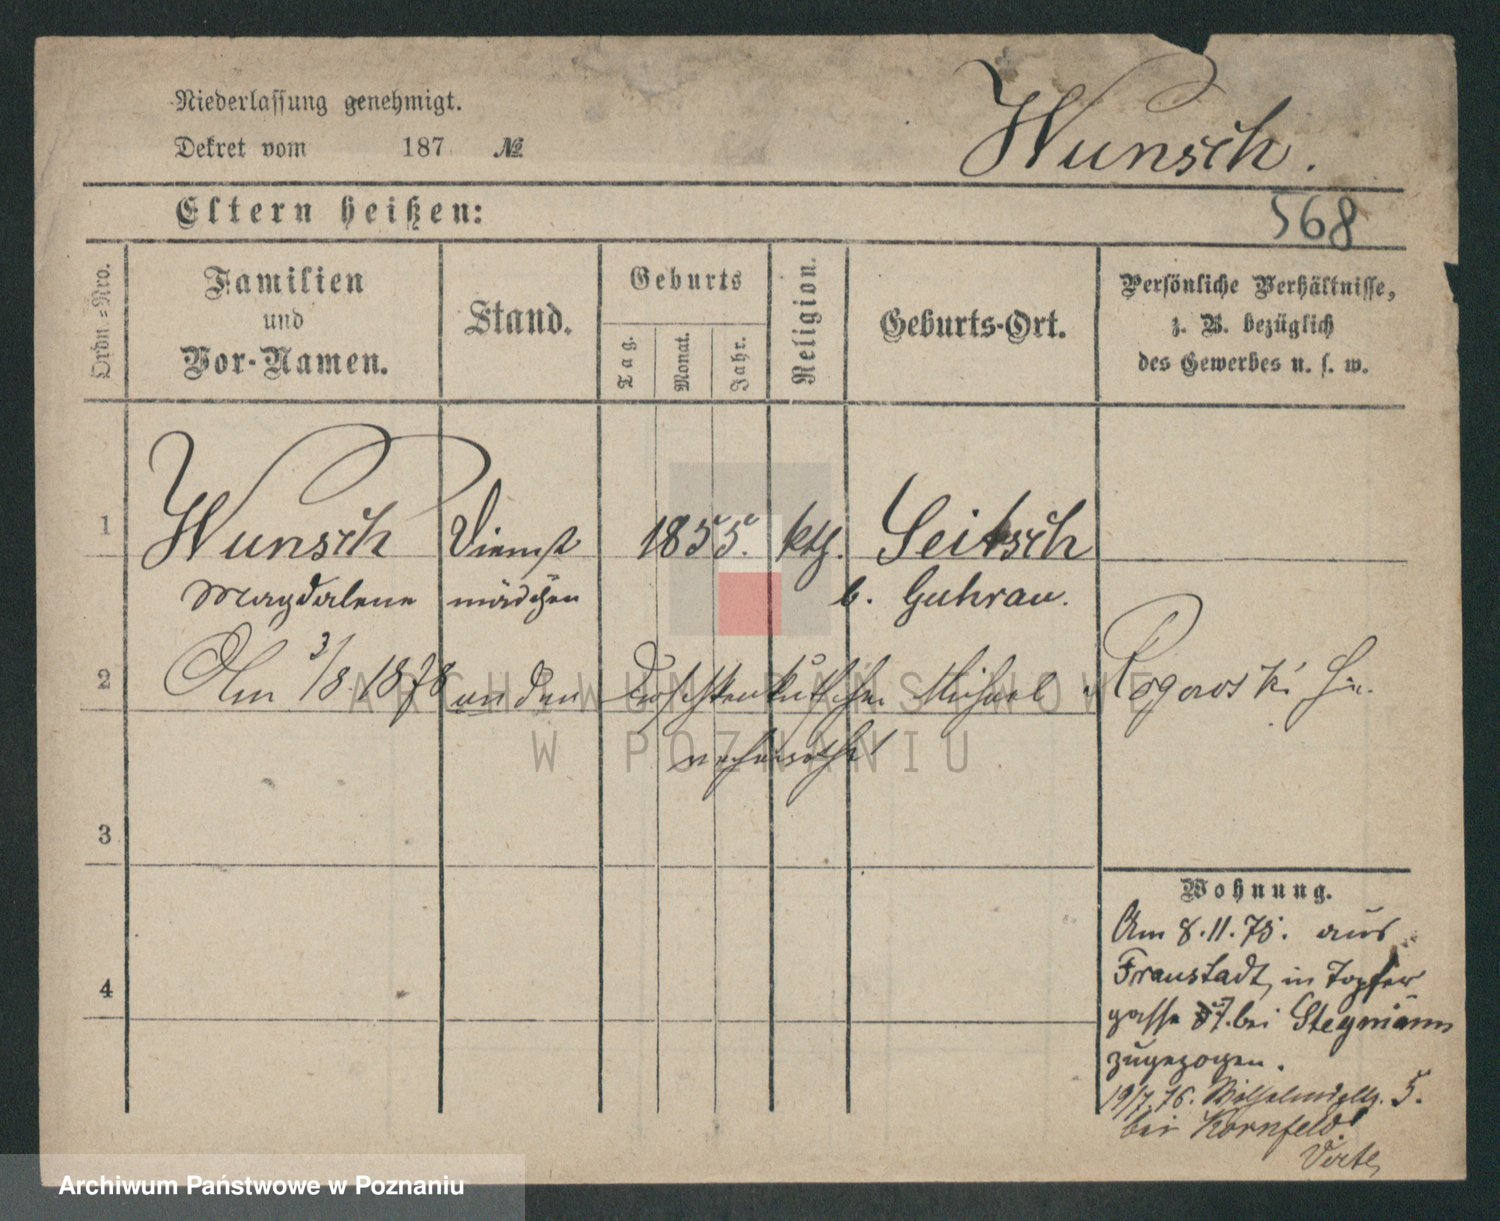 Niederlassung genehmigt.
Dekret vom 187 №
Wunsch.
Eltern heißen:
568
Ordn.=Nro.
Familien
und
Vor-Namen.
Stand.
Geburts
Tag.
Monat.
Jahr.
Religion.
Geburts-Ort.
Persönliche Verhältnisse,
z. B. bezüglich
des Gewerbes u. s. w.
1 Wunsch Dienst 1855. kth. Seitsch
Magdalene mädchen b. Guhrau.
2 Am 3/8. 1878 an den Michael Rogowski hier
verheirathet
3
4
Wohnung.
Am 8.11.75. aus
Fraustadt, in Töpfer
gasse 7. bei Stegmann
zugezogen.
19/7.76. 5.
bei Kornfeld
ARCHIWUM PAŃSTWOWE
W POZNANIU
Archiwum Państwowe w Poznaniu